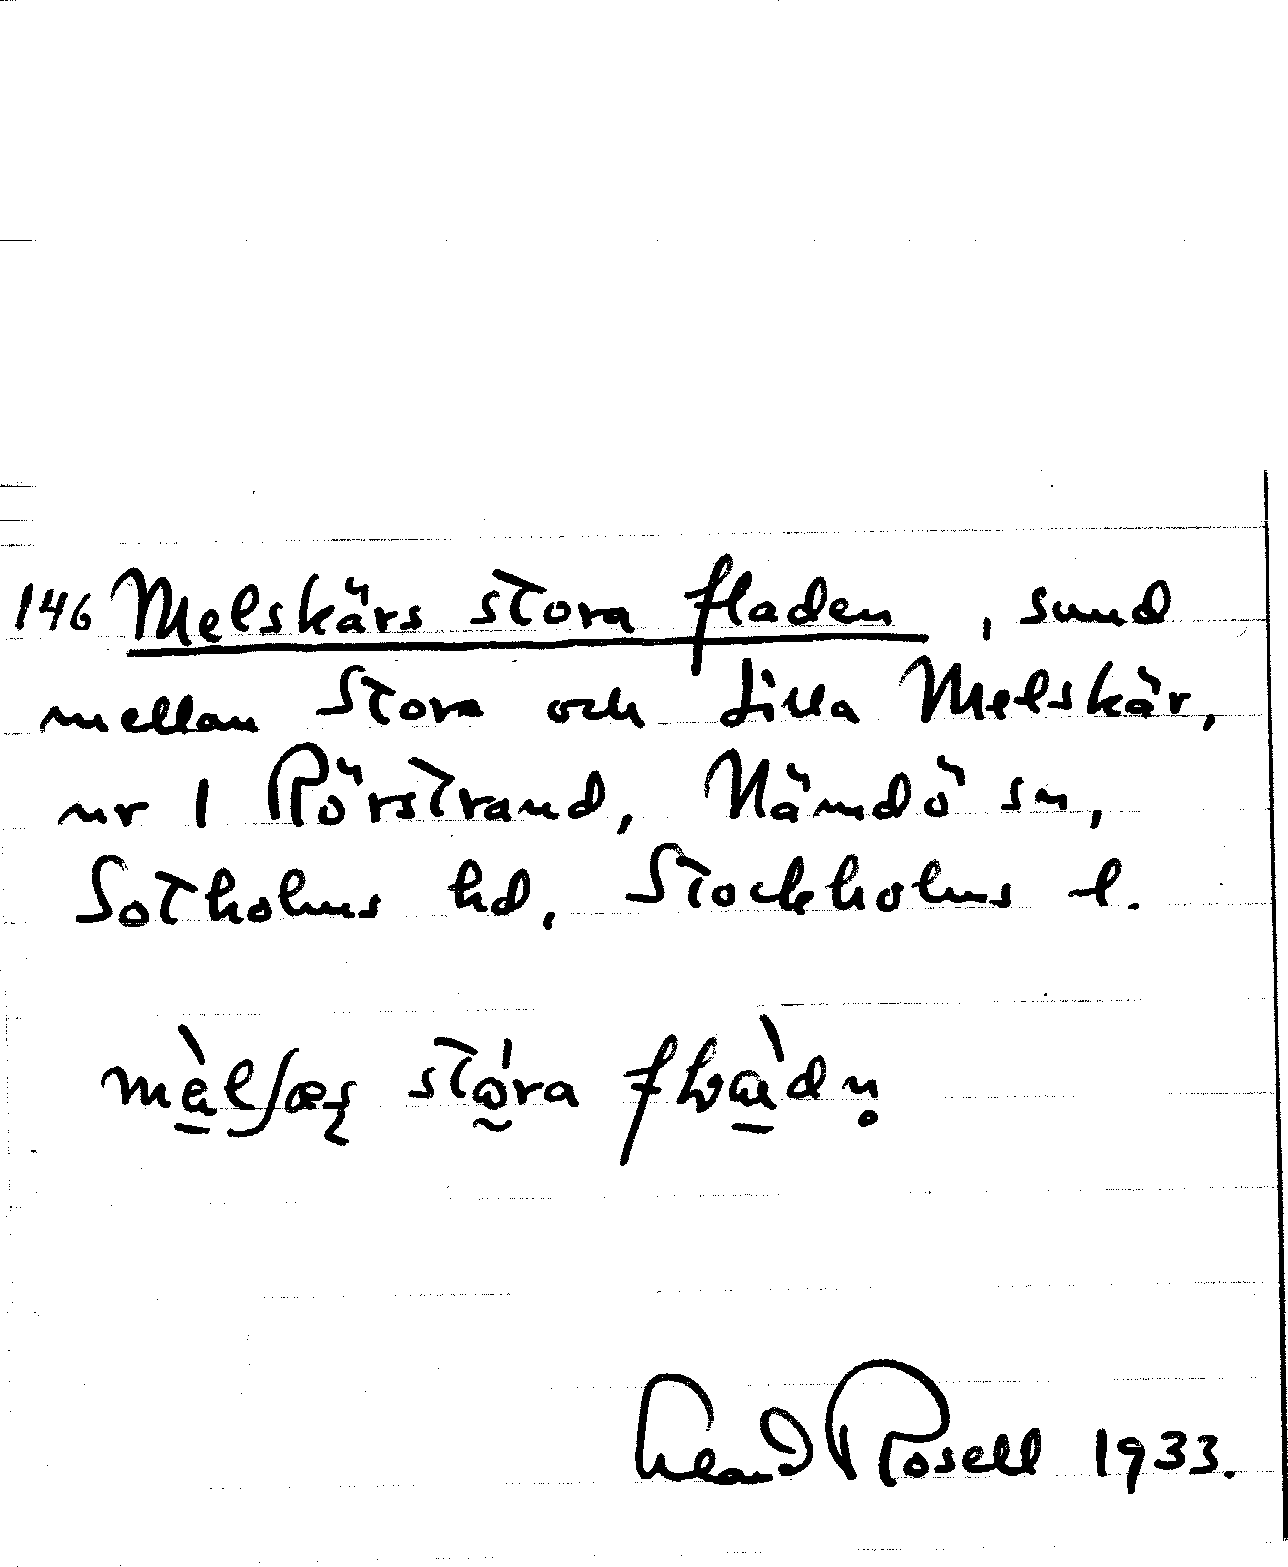 146 Melskärs stora fladen, sund
mellan Stora och Lilla Melskär,
nr 1 Rörstrand, Nämdö sn,
Sotholms hd, Stockholms l.
stóra
Rosell 1933.